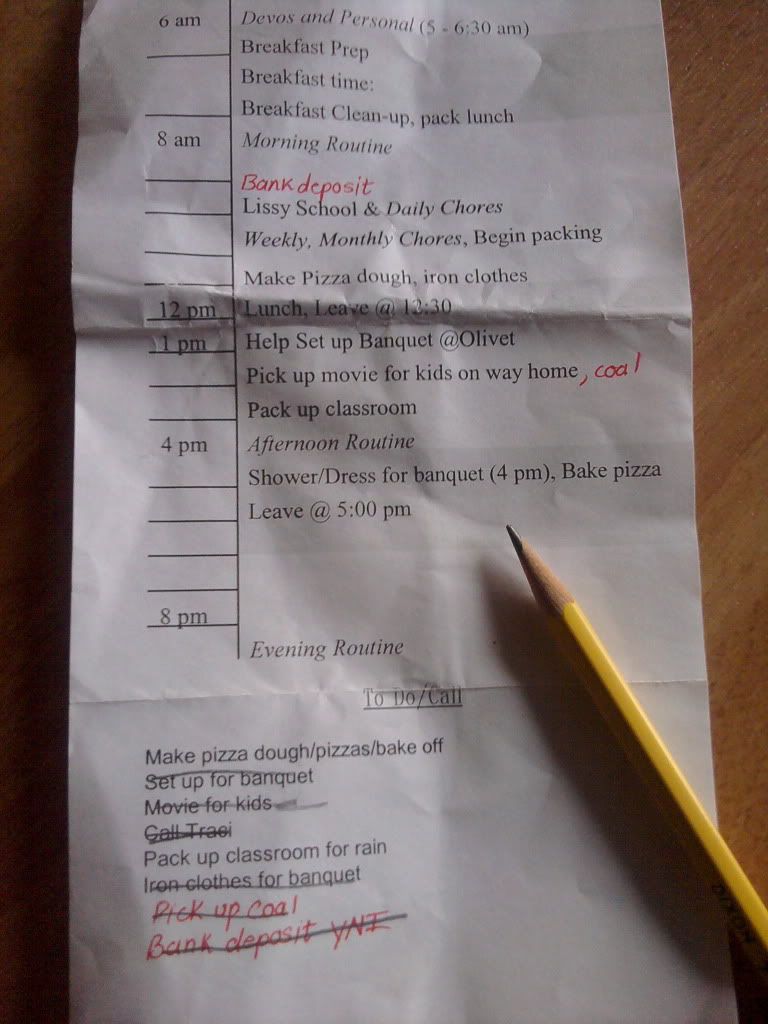 6 am Devos and Personal (5 - 6:30 am)
Breakfast Prep
Breakfast time:
Breakfast Clean-up, pack lunch
8 am Morning Routine
Bank deposit
Lissy School & Daily Chores
Weekly, Monthly Chores, Begin packing
Make Pizza dough, iron clothes
12 pm Lunch, Leave @ 12:30
1 pm Help Set up Banquet @Olivet
Pick up movie for kids on way home, coal
Pack up classroom
4 pm Afternoon Routine
Shower/Dress for banquet (4 pm), Bake pizza
Leave @ 5:00 pm
8 pm
Evening Routine
To Do/Call
Make pizza dough/pizzas/bake off
Set up for banquet
Movie for kids
Call Traci
Pack up classroom for rain
Iron clothes for banquet
Pick up coal
Bank deposit YNI